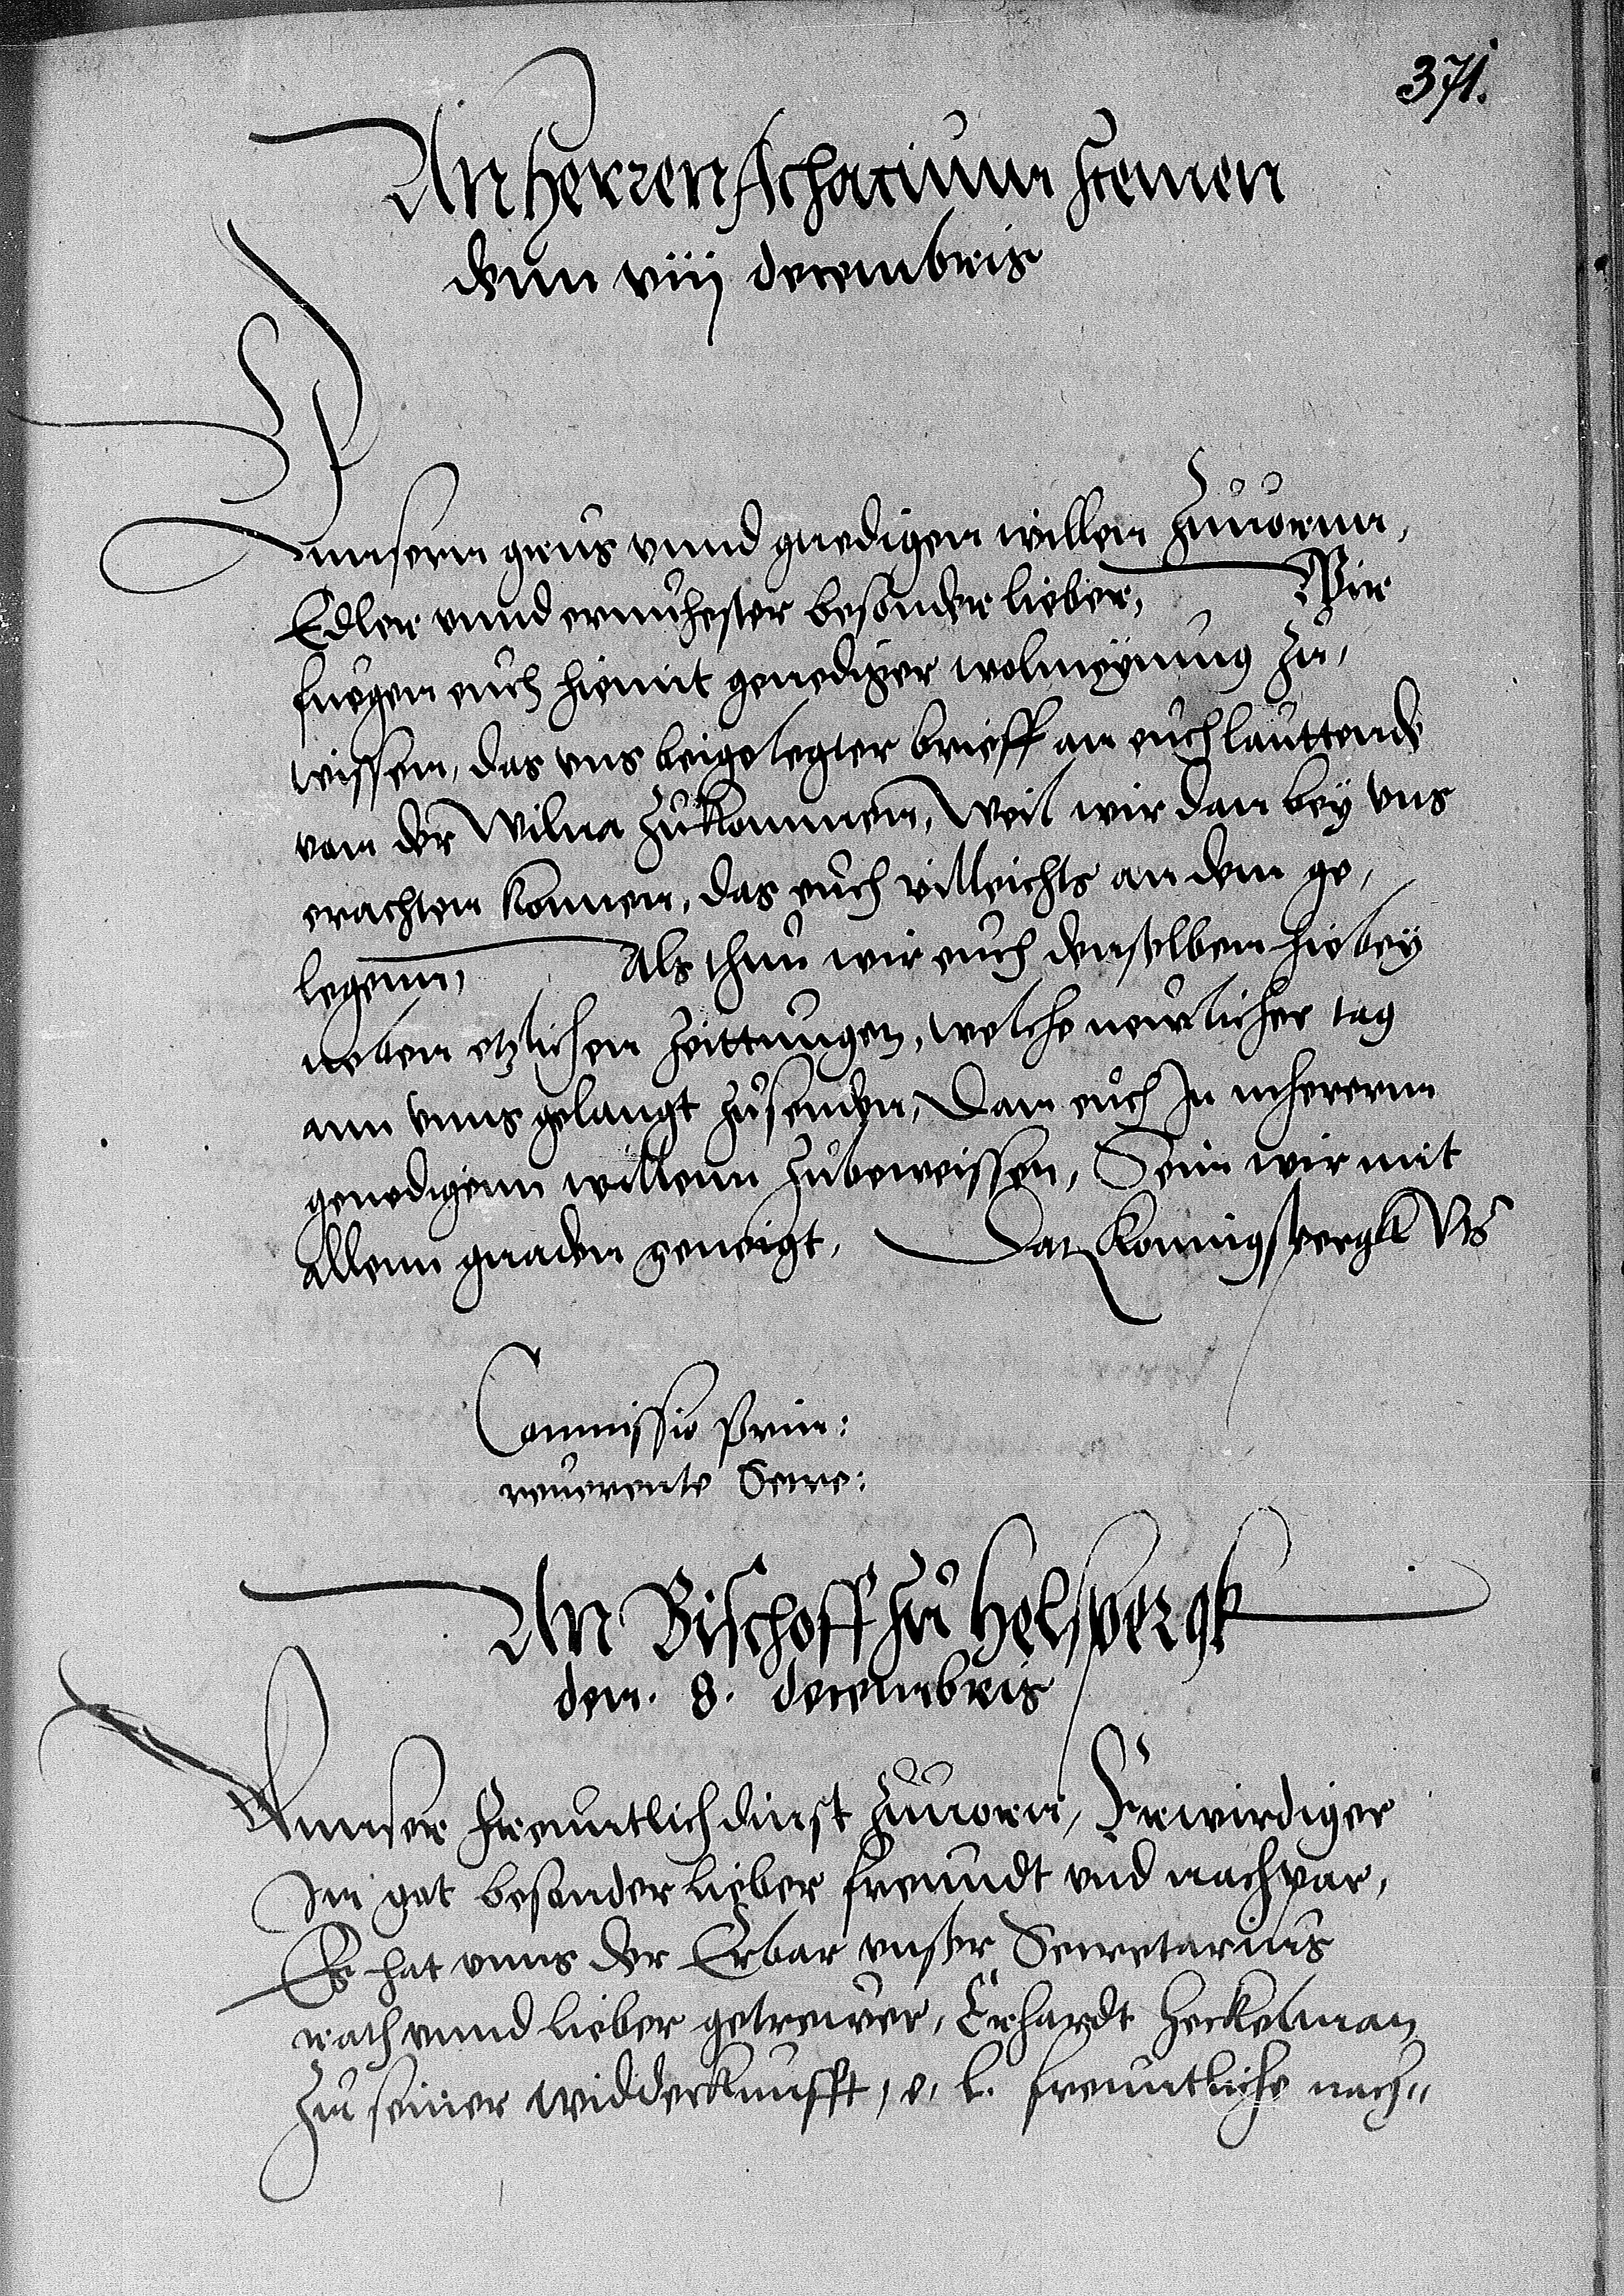 371.
An Herren Achacium Fremen
denn viij decembris
Vnnsern grus vnnd gnedigen willen zuuornn,
Edler vnnd ernuhester besonder lieber, Wir
fuegen euch hiemit genediger wolmeynung zu,
wissen, das vns beigelegter brieff an euch lauttende
von der Wilna zukommen, Weil wir dan bey vns
erachten konnen, das euch villeichts an dem ge,
legenn, Als thun wir euch denselben hiebey
neben etzlichen Zeittungen, welche neulicher tag
ann vnns gelangt zusenden, Dan euch In mherernn
genedigenn willenn zubeweissen, Sein wir mit
allenn gnaden geneigt, Dat Konnigspergk Vts
Commissio Prin:
reuerente Secre:
An Bischoff zu Helspergk
den. 8. decembris
Vnnser freuntlich dinst zuuorn, Erwirdiger
In got besonder lieber freundt vnd nachpar,
Es hat vnns der Erbar vnser Secretarius
rath vnnd lieber getreuer, Erhardt
zu seiner widderkunfft, e. l. freuntliche nach„